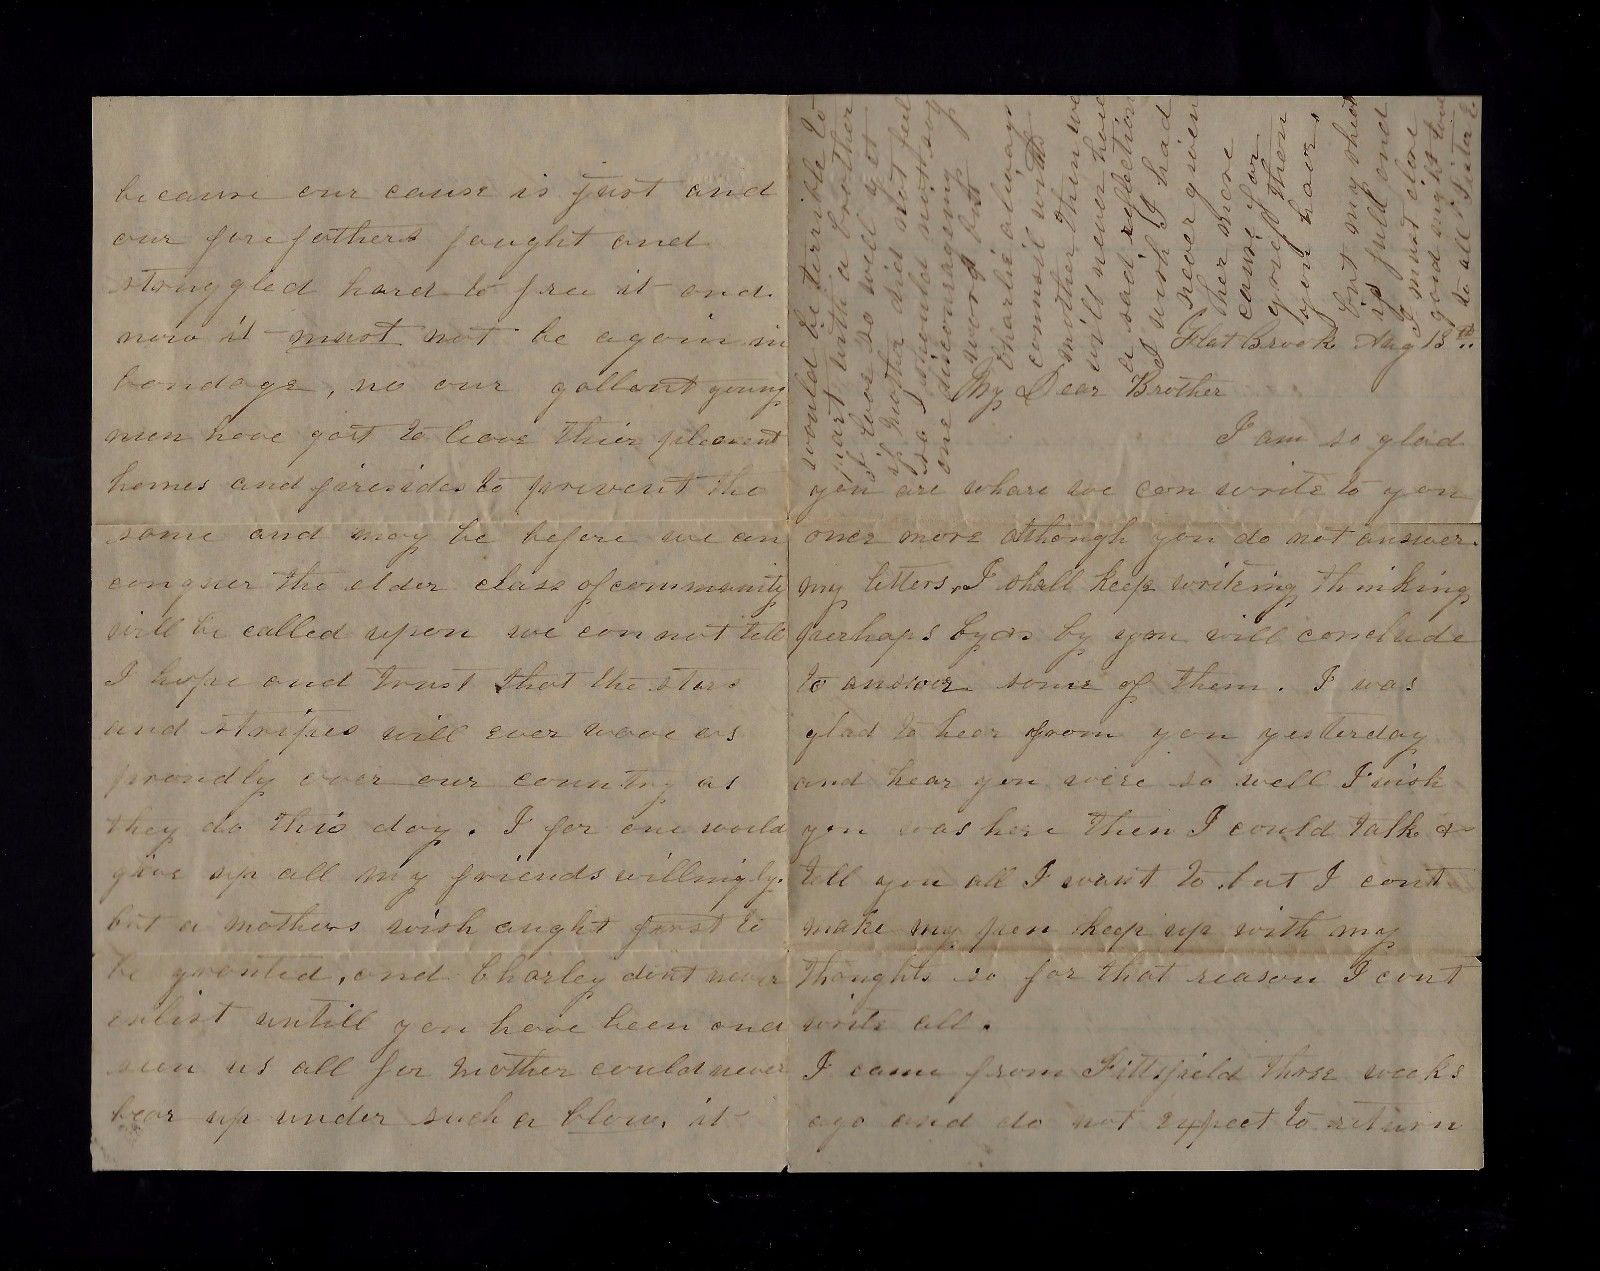 Flat Brook Aug 13th..
My Dear Brother
I am so glad
you are whare we can write to you
once more although you do not answer.
my letters, I shall keep writeing thinking
perhaps by an by you will conclude
to answer some of them. I was
glad to hear from you yesterday
and hear you were so well I wish
you was here then I could talk &
tell you all I want to. but I cont
make my pen keep up with my
thoughts so for that reason I cont
write all.
I came from Pittsfield three weeks
ago and do not expect to return
because our cause is just and
our forefathers fought and
struggled hard to free it and.
now it must not be again in
bondage, no our gallant young
men have got to leave thier pleasent
homes and firesides to prevent the
same and may be before we can
conquer the elder class of community
will be called upon we can not tell
I hope and trust that the stars
and stripes will ever wave as
proudly over our country as
they do this day. I for one would
give up all my friends willingly.
but a mothers wish aught first to
be granted, and Charley dont never
enlist untill you have been and
seen us all for Mother could never
bear up under such a blow, it
would be terrible to
part with a brother
I love so well yet
if Mother did not feel
so I should not say
one discourageing
word but
Charlie always
counsil with
mother then we
will never have
a sad reflection
I wish I had
never given
her more
cause for
grief then
you have
but my sheet
is full and
I must close
good night love
to all Sister